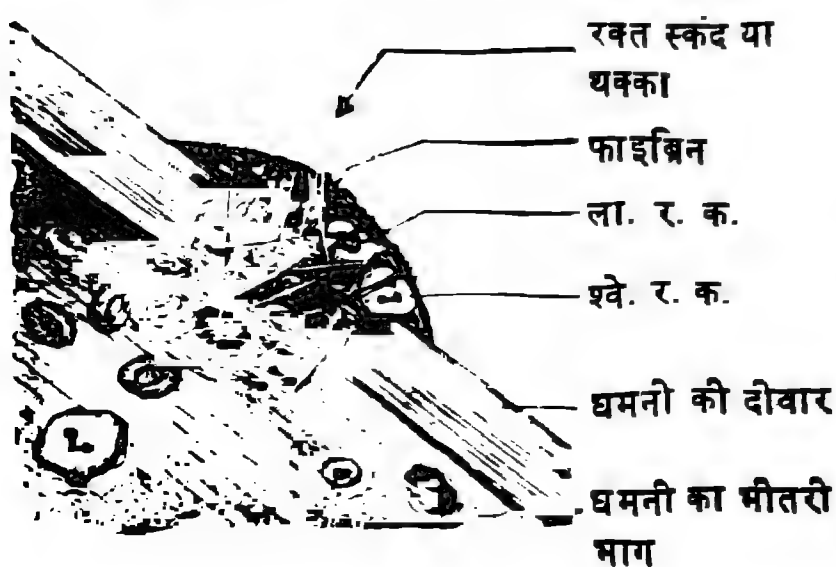 रक्त स्कंद या
थक्का
फाइब्रिन
ला. र. क.
श्वे. र. क.
धमनी की दीवार
धमनी का भीतरी
भाग